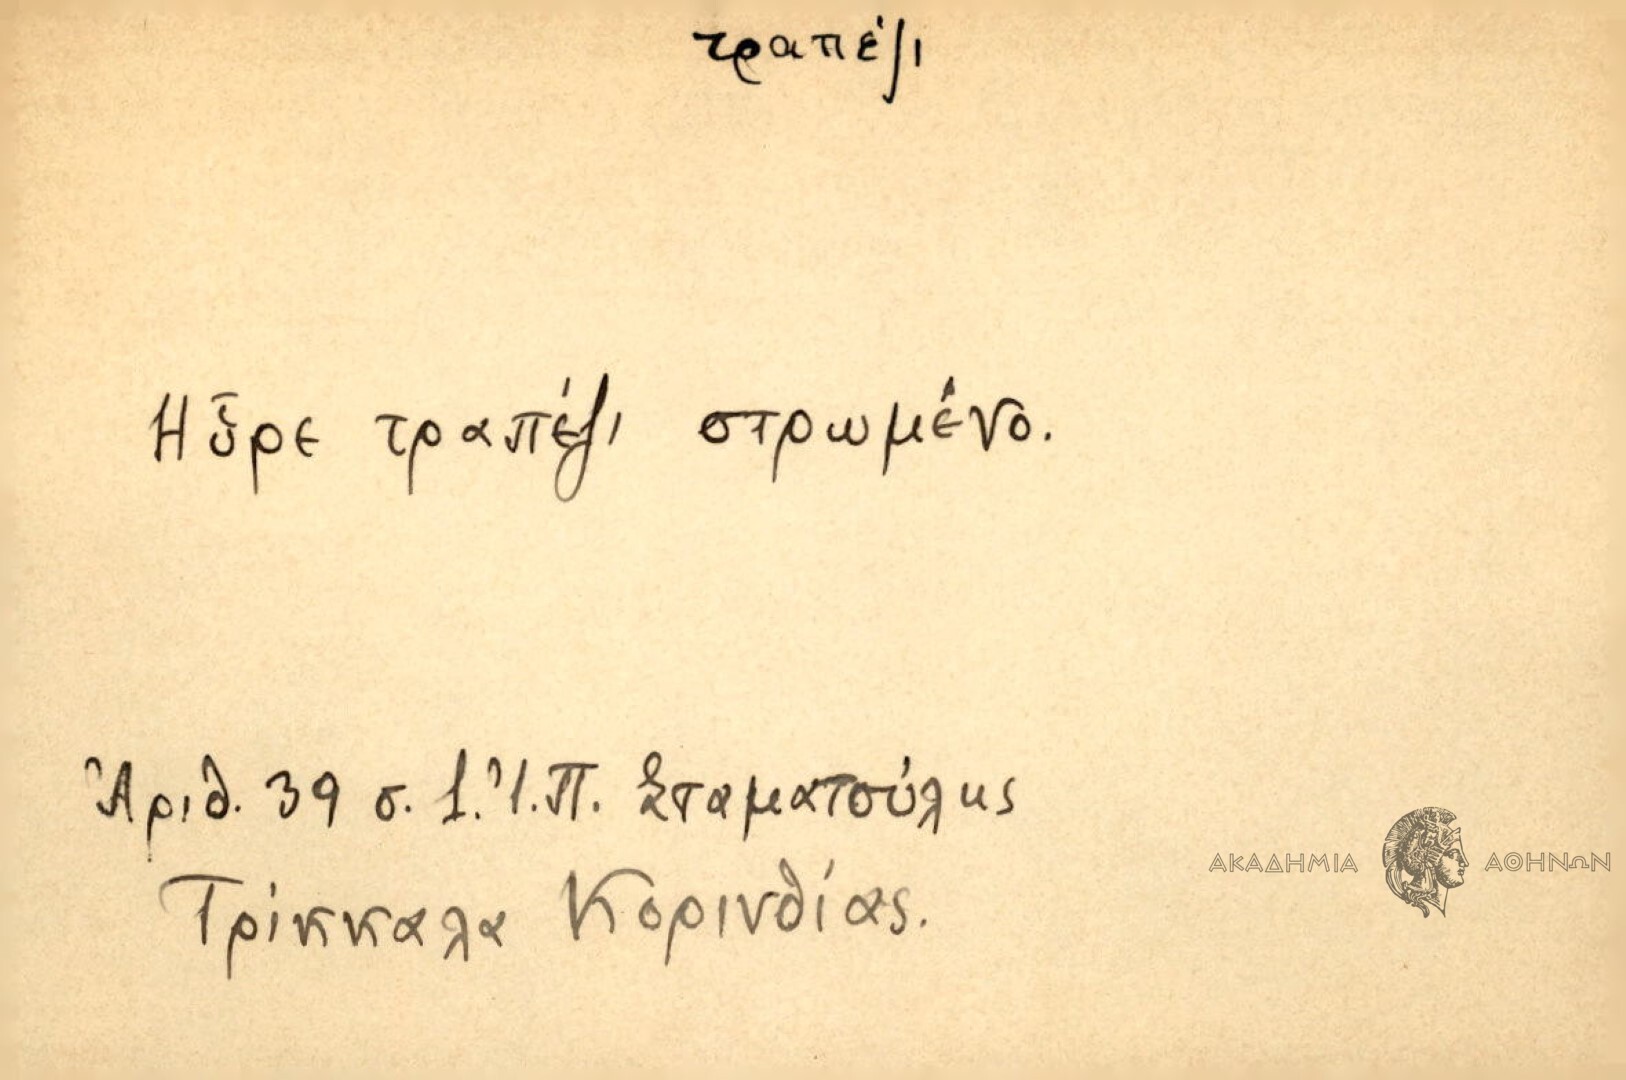 τραπέζι
Ηὗρε τραπέζι στρωμένο.
Ἀριθ. 39 σ. 1. Ἰ. Π. Σταματούλης
Τρίκκαλα Κορινθίας.
ΑΚΑΔΗΜΙΑ ΑΘΗΝΩΝ